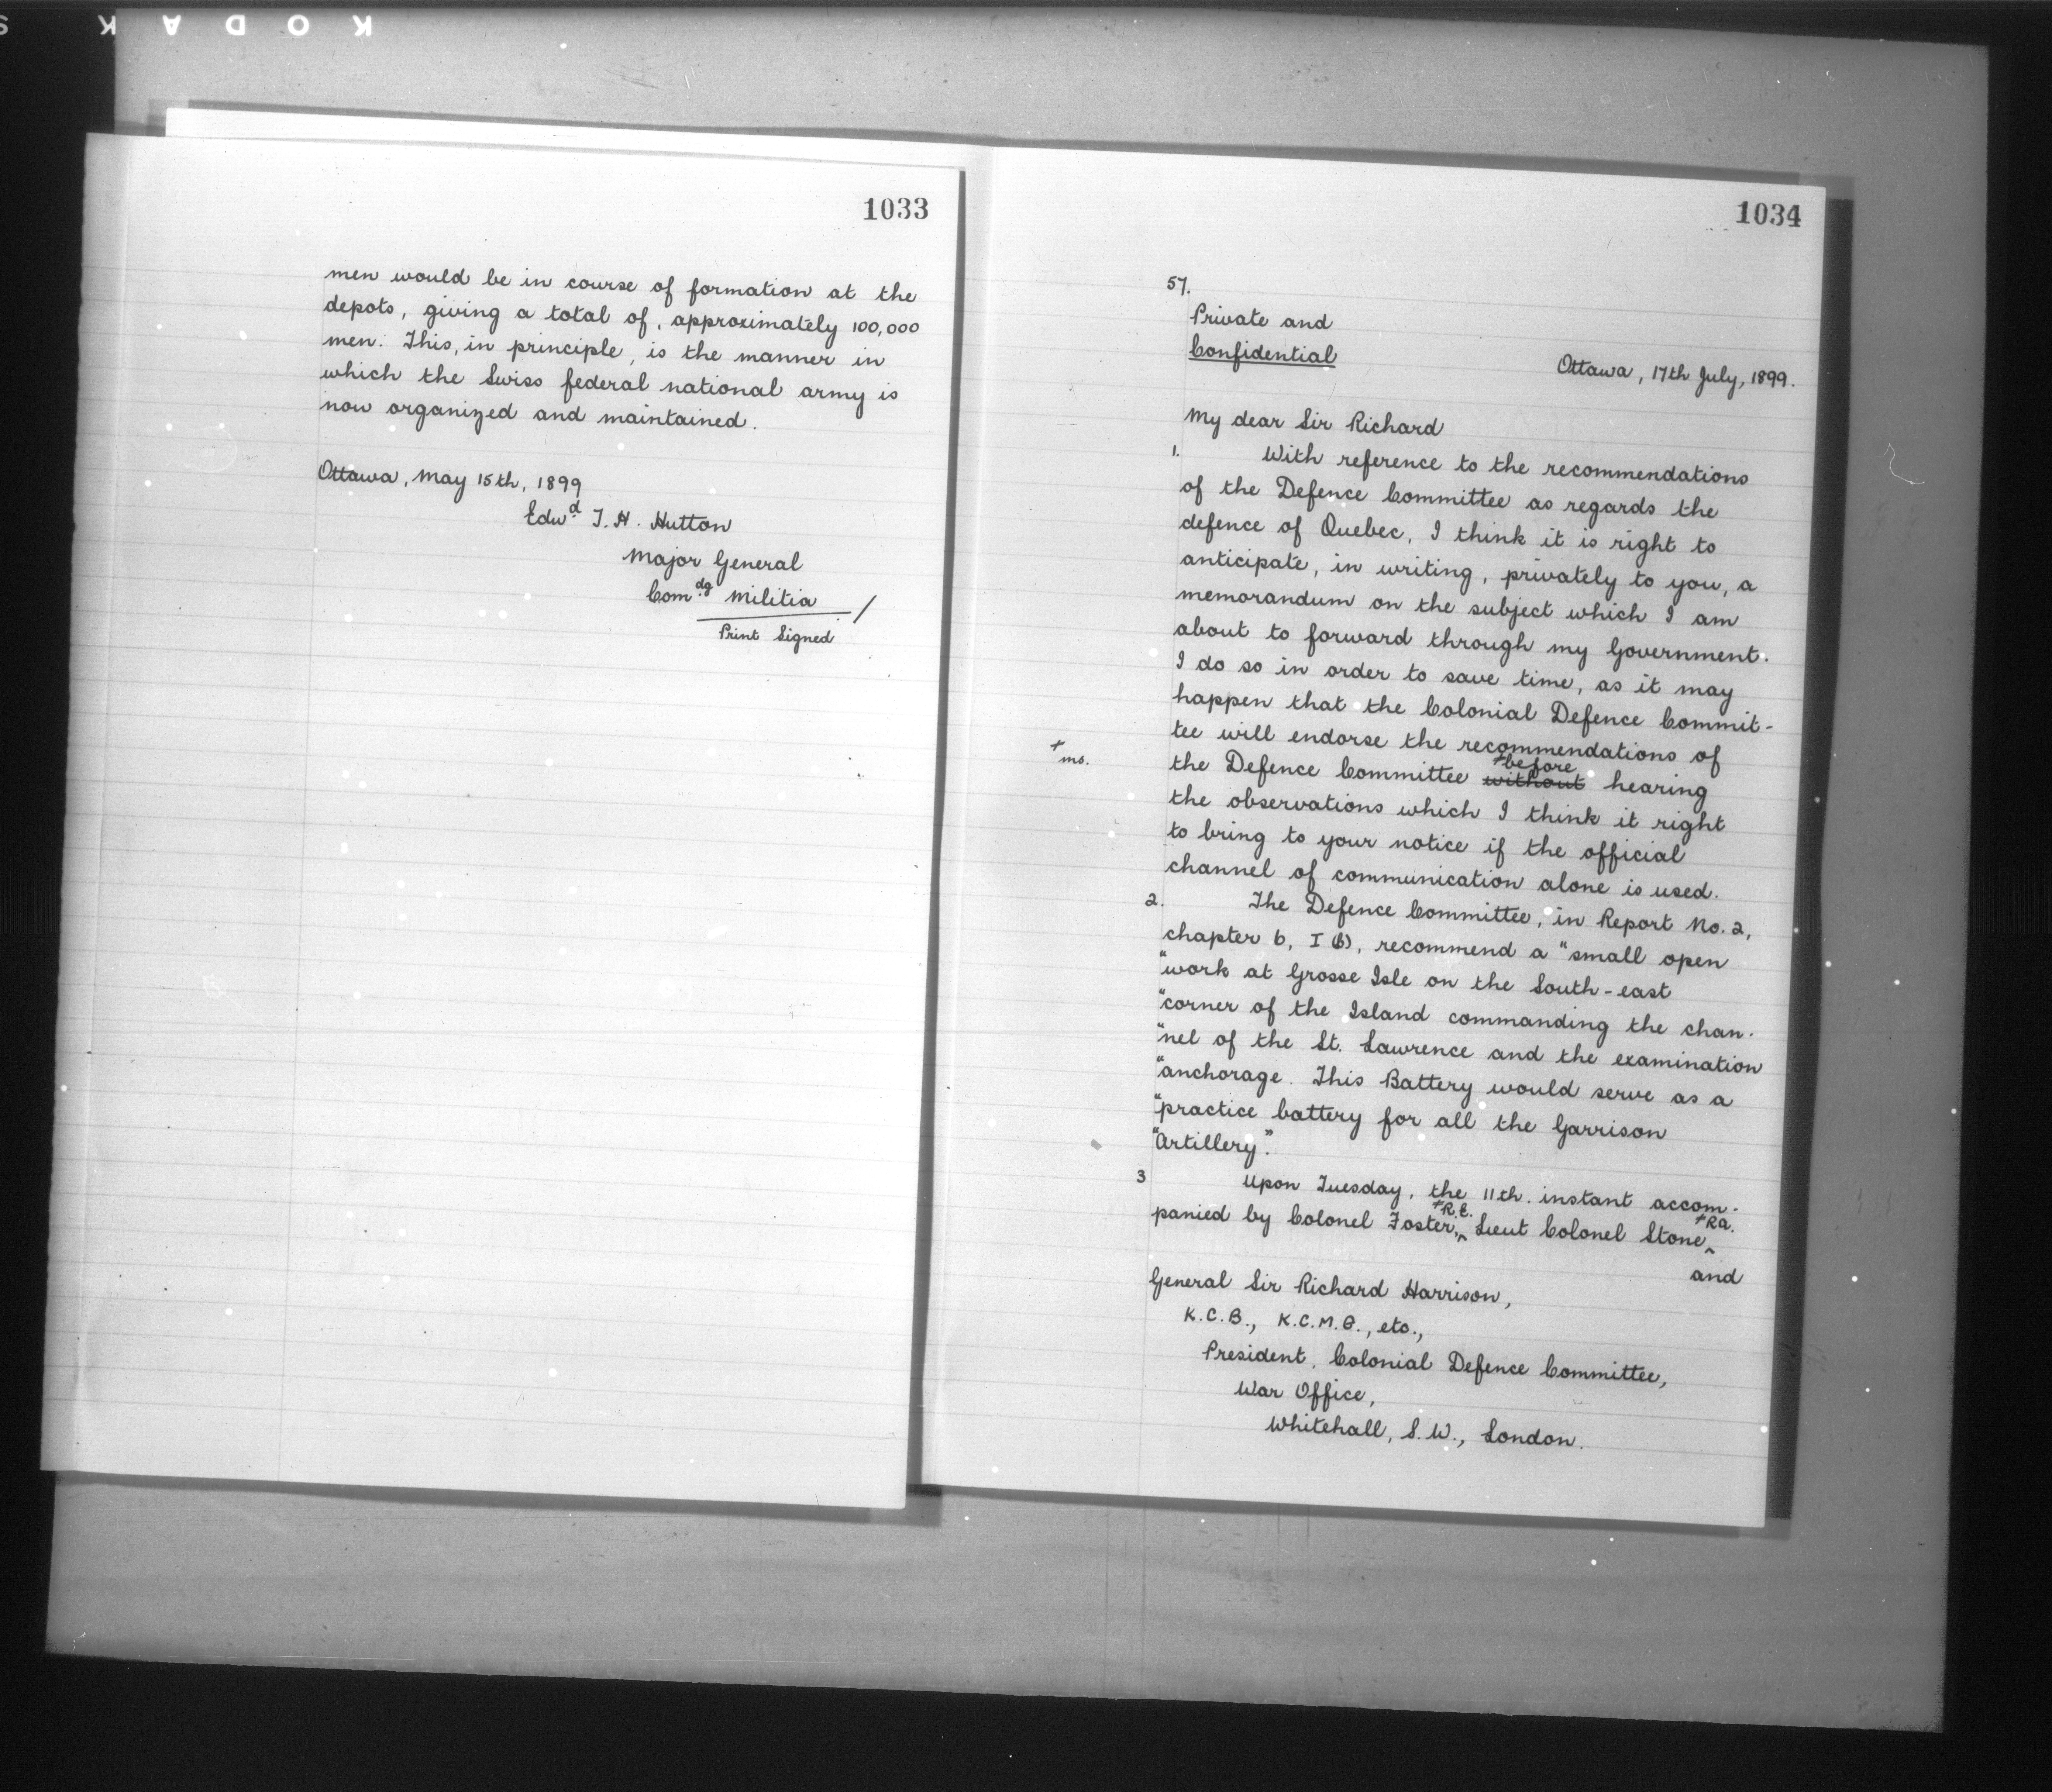 KODAK S
1033
men would be in course of formation at the
depots, giving a total of, approximately 100,000
men. This, in principle, is the manner in
which the Swiss federal national army is
now organized and maintained.
Ottawa, May 15th, 1899
Edwd T. H. Hutton
Major General
Comdg Militia /
Print Signed
1034
57.
Private and
Confidential
Ottawa, 17th July, 1899.
My dear Sir Richard
1. With reference to the recommendations
of the Defence Committee as regards the
defence of Quebec, I think it is right to
anticipate, in writing, privately to you, a
memorandum on the subject which I am
about to forward through my Government.
I do so in order to save time, as it may
happen that the Colonial Defence Commit-
tee will endorse the recommendations of
+before
+ ms. the Defence Committee without hearing
the observations which I think it right
to bring to your notice if the official
channel of communication alone is used.
2. The Defence Committee, in Report No. 2,
chapter 6, I (b), recommend a "small open
"work at Grosse Isle on the South-east
"corner of the Island commanding the chan-
"nel of the St. Lawrence and the examination
"anchorage. This Battery would serve as a
"practice battery for all the Garrison
"Artillery."
3 Upon Tuesday, the 11th. instant accom-
+R.E. +R.A.
panied by Colonel Foster,^ Lieut Colonel Stone,^
and
General Sir Richard Harrison,
K.C.B., K.C.M.G., etc.,
President, Colonial Defence Committee,
War Office,
Whitehall, S.W., London.